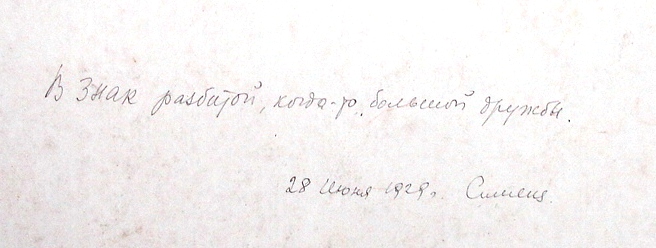 В Знак разбитой, когда-то, большой дружбы.
28 Июня 1929 г. Симеиз.